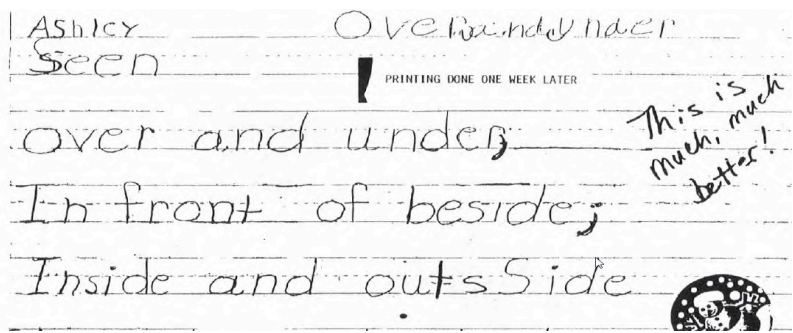 Ashley Over and Under
Seen
PRINTING DONE ONE WEEK LATER
This is
much, much
better!
over and under;
In front of beside;
Inside and outsSide